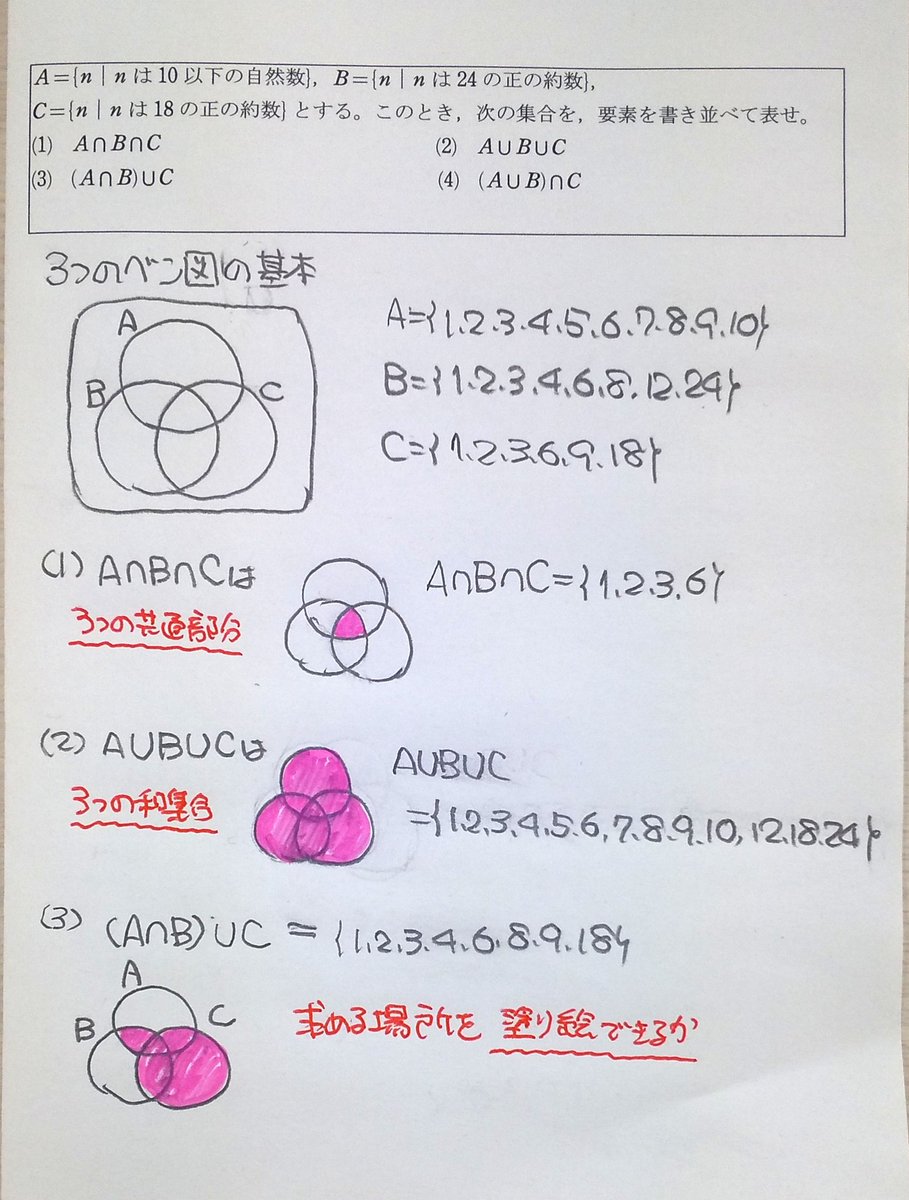 A={n | n は 10 以下の自然数}, B={n | n は 24 の正の約数},
C={n | n は 18 の正の約数} とする。このとき, 次の集合を, 要素を書き並べて表せ。
(1) A∩B∩C (2) A∪B∪C
(3) (A∩B)∪C (4) (A∪B)∩C
3つのベン図の基本
A
B C
A={1.2.3.4.5.6.7.8.9.10}
B={1.2.3.4.6.8.12.24}
C={1.2.3.6.9.18}
(1) A∩B∩Cは
3つの共通部分
A∩B∩C={1.2.3.6}
(2) A∪B∪Cは
3つの和集合
A∪B∪C
={1.2.3.4.5.6.7.8.9.10,12.18.24}
(3) (A∩B)∪C = {1.2.3.4.6.8.9.18}
A
B C
求める場所を 塗り絵できるか